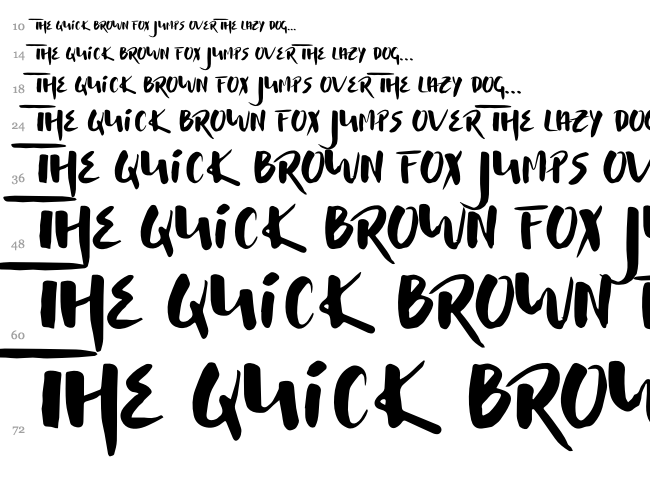 10 THE QUiCK BROWN FOX JUMPS OVER THE LAZY DOG...
14 THE QUiCK BROWN FOX JUMPS OVER THE LAZY DOG...
18 THE QUiCK BROWN FOX JUMPS OVER THE LAZY DOG...
24 THE QUiCK BROWN FOX JUMPS OVER THE LAZY DOG
36 THE QUiCK BROWN FOX JUMPS OV
48 THE QUiCK BROWN FOX J
60 THE QUiCK BROWN
72 THE QUiCK BROW